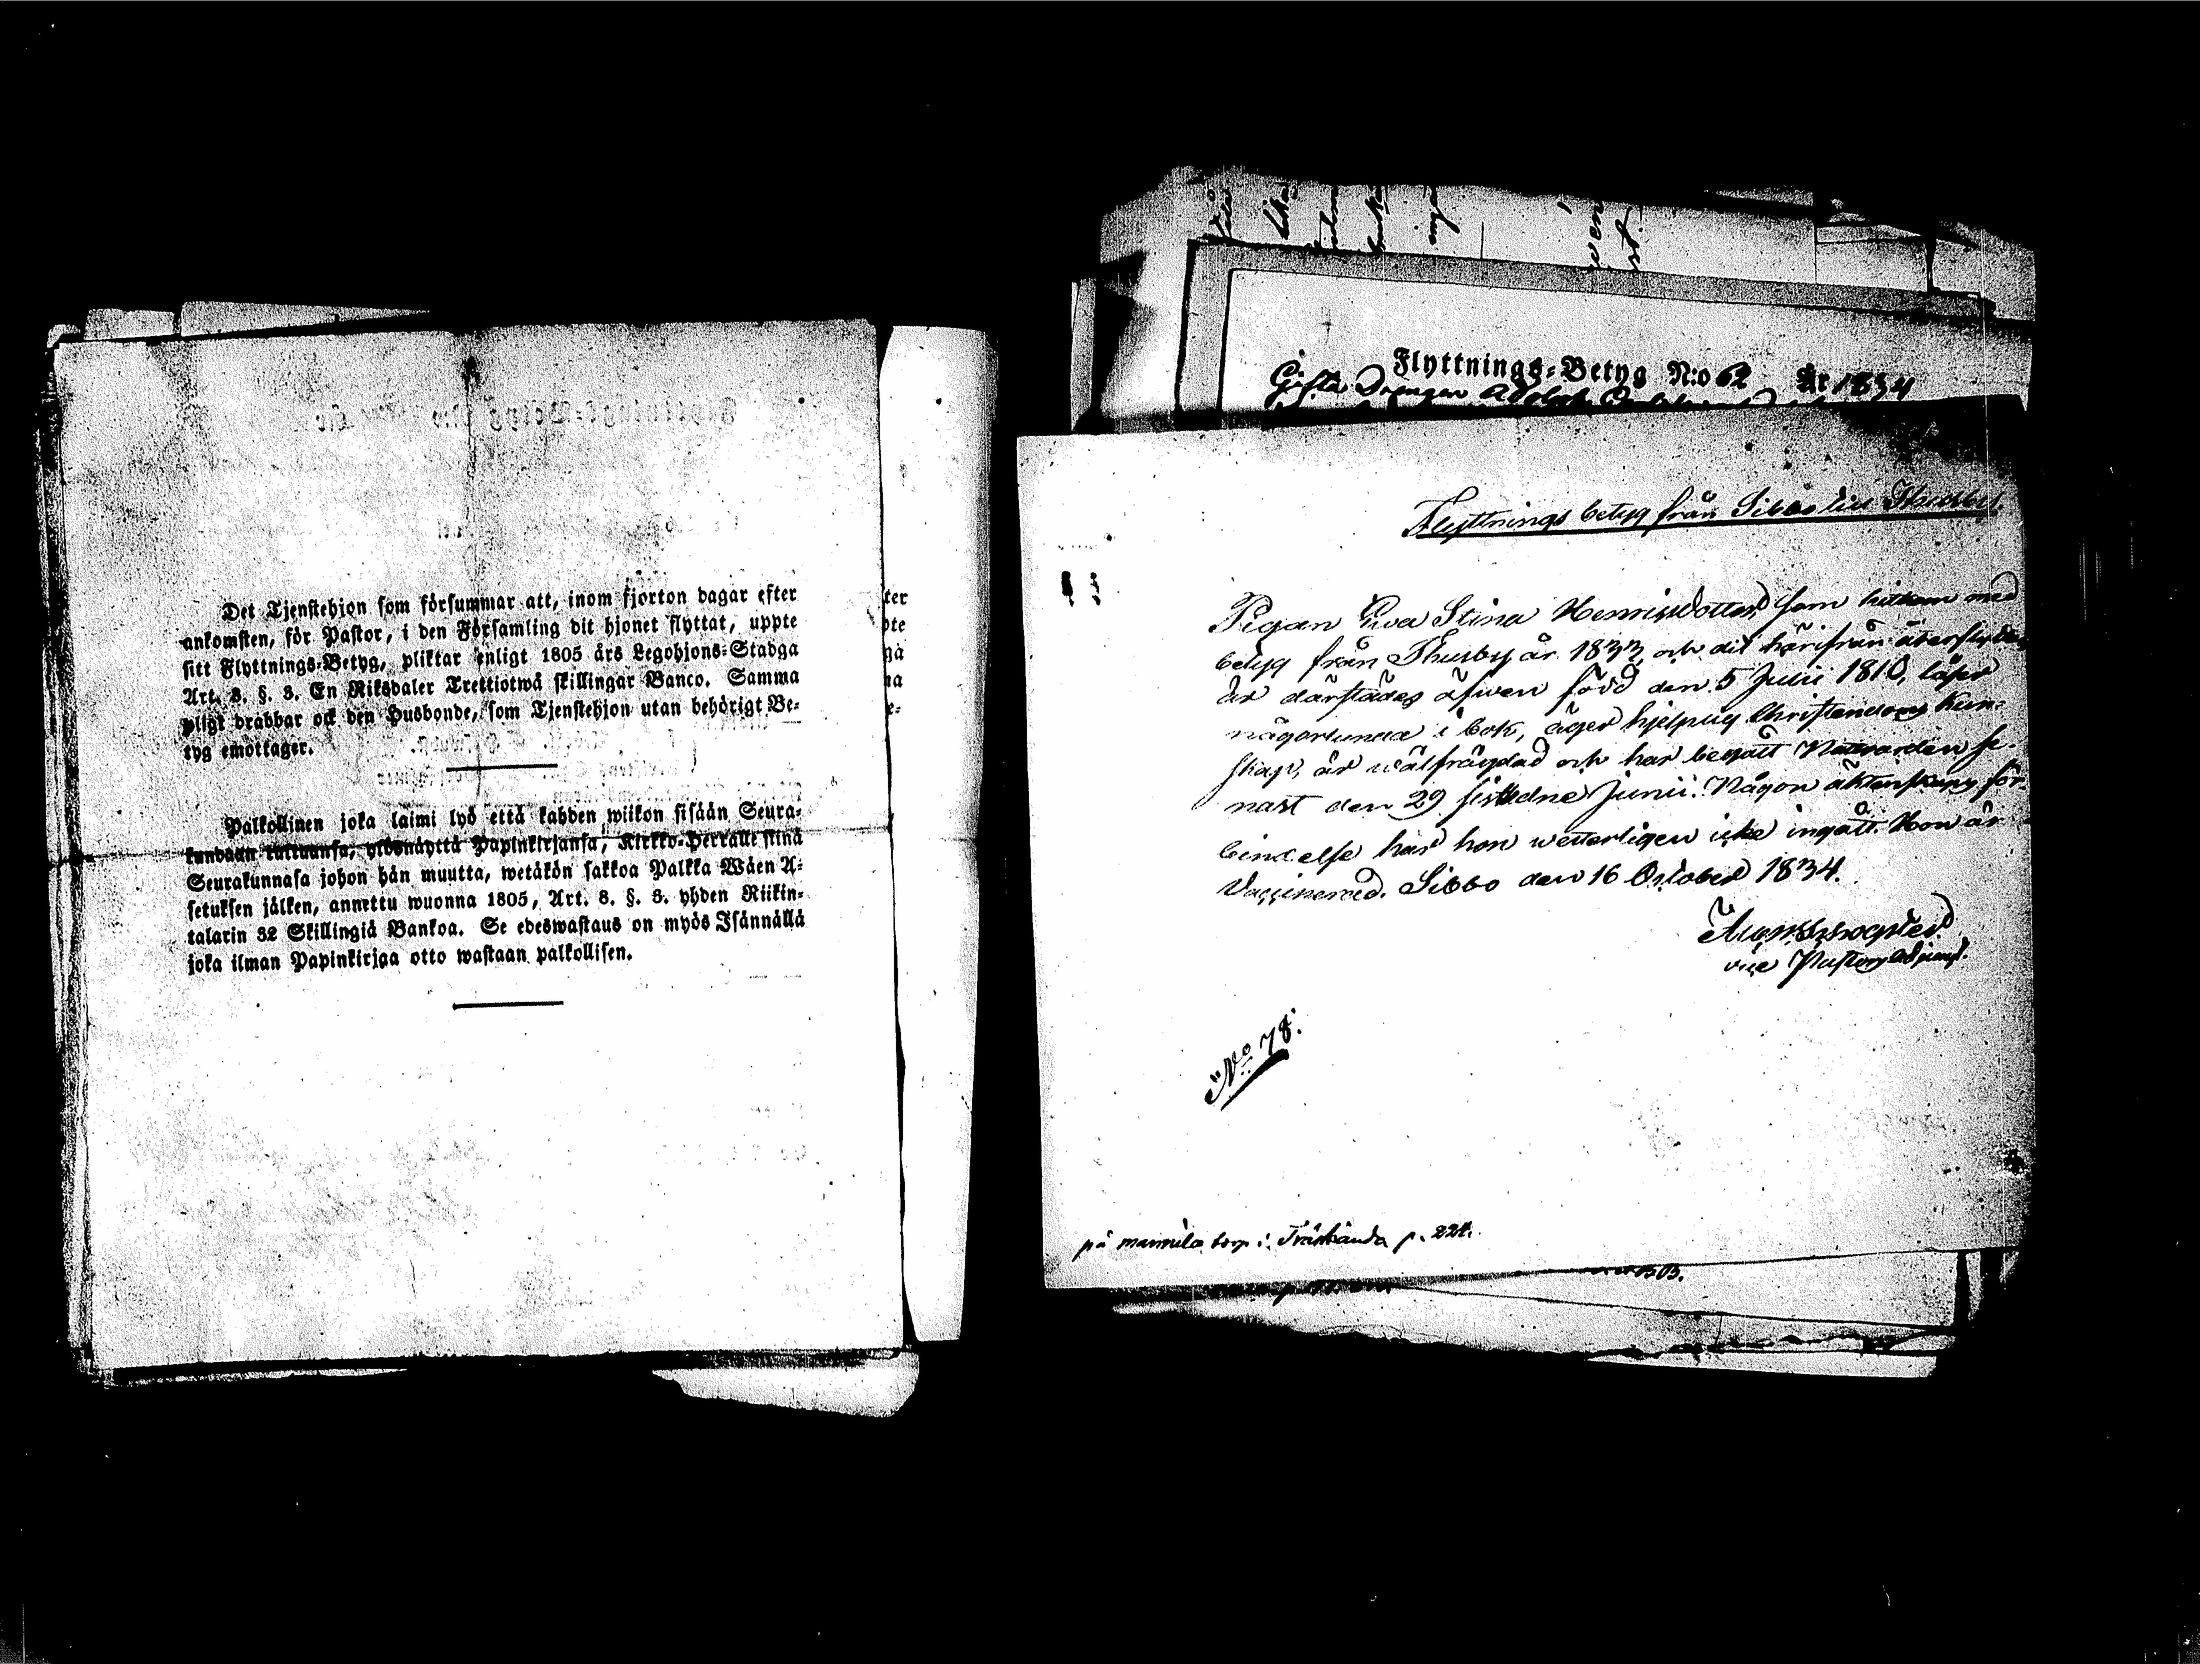 Det Tjenstehjon som försummar att, inom fjorton dagar efter
ankomsten, för Pastor, i den Församling dit hjonet flyttat, uppte
sitt Flyttnings-Betyg, pliktar enligt 1805 års Legohjons-Stadga
Art. 8. §. 3. En Riksdaler Trettiotwå skillingar Banco. Samma
pligt drabbar ock den Husbonde, som Tjenstehjon utan behörigt Be-
tyg emottager.
Palkollinen joka laimi lyö että kahden wiikon sisään Seura-
kundaan tultuansa, ylösnäyttä Papinkirjansa, Kirkko-Herralle siinä
Seurakunnasa johon hän muutta, wetäkön sakkoa Palkka Wäen A-
setuksen jälken, annettu wuonna 1805, Art. 8. §. 3. yhden Riikin-
talarin 32 Skillingiä Bankoa. Se edeswastaus on myös Isännällä
joka ilman Papinkirjaa otto wastaan palkollisen.
ter
pte
gå
na
e-
Flyttnings-Betyg N:o 62 År 1834
Gifta Drengen Adolph
Flyttnings betyg från Sibbo till Thusby.
Pigan Ewa Stina Henrisdotter, som hitkom med
betyg från Thusby år 1833, och dit härifrån återflyttar,
är därstädes äfwen född den 5 Julii 1810, läser
någorlunda i bok, äger hjelplig Christendoms Kun-
skap, är wälfrägdad och har begått Nattwarden se-
nast den 29 sistledne Junii. Någon äktenskaps för-
bindelse har hon wetterligen icke ingått. Hon är
Vaccinerad. Sibbo den 16 October 1834.
vice Pastors Adjunct.
No 78.
på mannila torp i Träskända p. 224.